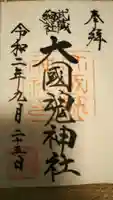 奉拝
武蔵
総社
大國魂神社
令和二年九月二十五日